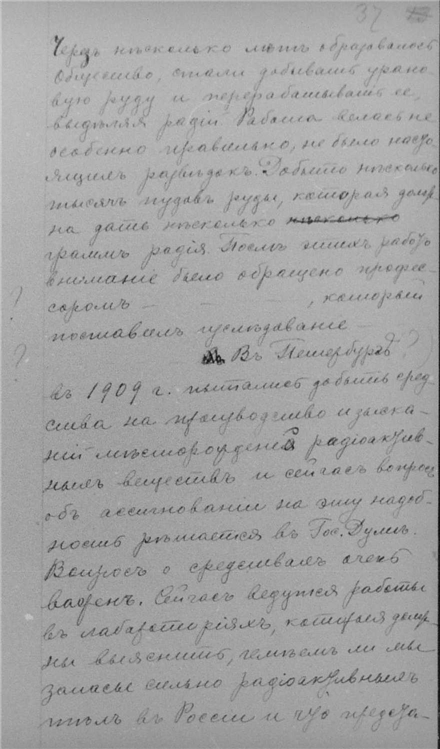 37
Черезъ нѣсколько лѣтъ образовалось
Общество, стали добывать урано-
вую руду и перерабатывать ее,
выдѣляя радій. Работа велась не
особенно правильно, не было насто-
ящихъ развѣдокъ. Добыто нѣсколько
тысячъ пудовъ руды, которая долж-
на дать нѣсколько нѣсколько
граммъ радія. Послѣ этихъ работъ
вниманіе было обращено профес-
? соромъ — — — , который
поставилъ изслѣдованіе —
? Въ Петербургѣ ?)
въ 1909 г. пытались добыть сред-
ства на производство изыска-
ній мѣсторожденій радіоактив-
ныхъ веществъ и сейчасъ вопросъ
объ ассигновании на эту надоб-
ность рѣшается въ Гос. Думѣ.
Вопросъ о средствахъ очень
важенъ. Сейчасъ ведутся работы
въ лабораторіяхъ, которыя долж-
ны выяснить, имѣемъ ли мы
запасы сильно радіоактивныхъ
тѣлъ въ Россіи и что предста-